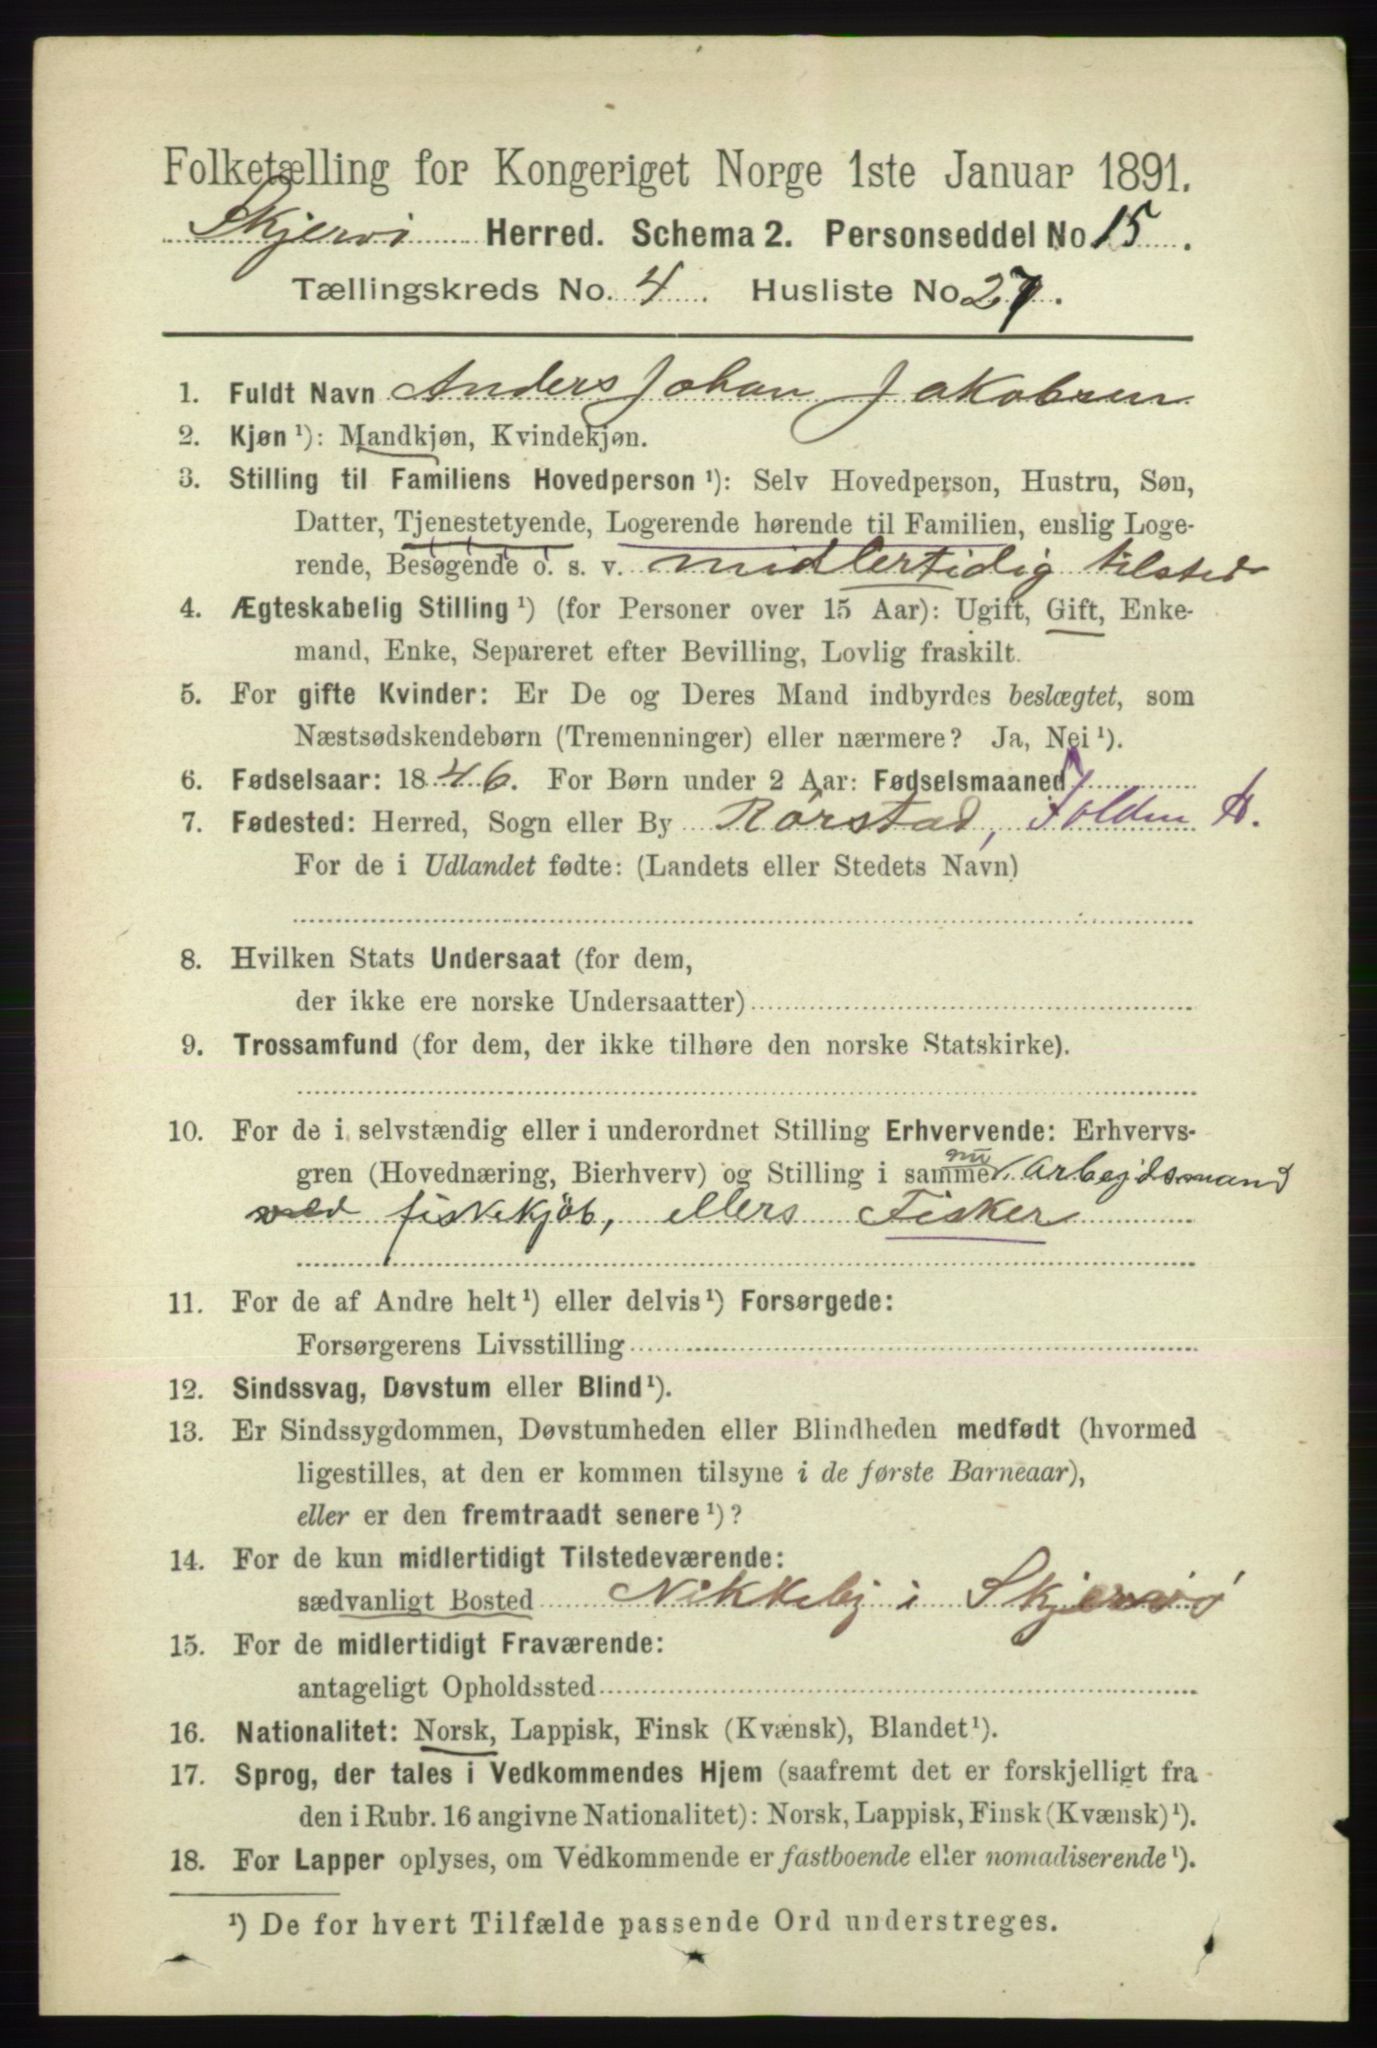 Folketælling for Kongeriget Norge 1ste Januar 1891.
Skjervø Herred. Schema 2. Personseddel No 15.
Tællingskreds No. 4. Husliste No 27.
1. Fuldt Navn Anders Johan Jakobsen
2. Kjøn ¹): Mandkjøn, Kvindekjøn.
3. Stilling til Familiens Hovedperson ¹): Selv Hovedperson, Hustru, Søn,
Datter, Tjenestetyende, Logerende hørende til Familien, enslig Loge-
rende, Besøgende o. s. v. midlertidig tilsted
4. Ægteskabelig Stilling ¹) (for Personer over 15 Aar): Ugift, Gift, Enke-
mand, Enke, Separeret efter Bevilling, Lovlig fraskilt.
5. For gifte Kvinder: Er De og Deres Mand indbyrdes beslægtet, som
Næstsødskendebørn (Tremenninger) eller nærmere? Ja, Nei ¹).
6. Fødselsaar: 1846. For Børn under 2 Aar: Fødselsmaaned
7. Fødested: Herred, Sogn eller By Rørstad, Folden H.
For de i Udlandet fødte: (Landets eller Stedets Navn)
8. Hvilken Stats Undersaat (for dem,
der ikke ere norske Undersaatter)
9. Trossamfund (for dem, der ikke tilhøre den norske Statskirke).
10. For de i selvstændig eller i underordnet Stilling Erhvervende: Erhvervs-
gren (Hovednæring, Bierhverv) og Stilling i samme nu Arbejdsmand
ved fiskekjøb, ellers Fisker
11. For de af Andre helt ¹) eller delvis ¹) Forsørgede:
Forsørgerens Livsstilling
12. Sindssvag, Døvstum eller Blind ¹).
13. Er Sindssygdommen, Døvstumheden eller Blindheden medfødt (hvormed
ligestilles, at den er kommen tilsyne i de første Barneaar),
eller er den fremtraadt senere ¹)?
14. For de kun midlertidigt Tilstedeværende:
sædvanligt Bosted Nikkeby i Skjervø
15. For de midlertidigt Fraværende:
antageligt Opholdssted
16. Nationalitet: Norsk, Lappisk, Finsk (Kvænsk), Blandet ¹).
17. Sprog, der tales i Vedkommendes Hjem (saafremt det er forskjelligt fra
den i Rubr. 16 angivne Nationalitet): Norsk, Lappisk, Finsk (Kvænsk) ¹).
18. For Lapper oplyses, om Vedkommende er fastboende eller nomadiserende ¹).
¹) De for hvert Tilfælde passende Ord understreges.